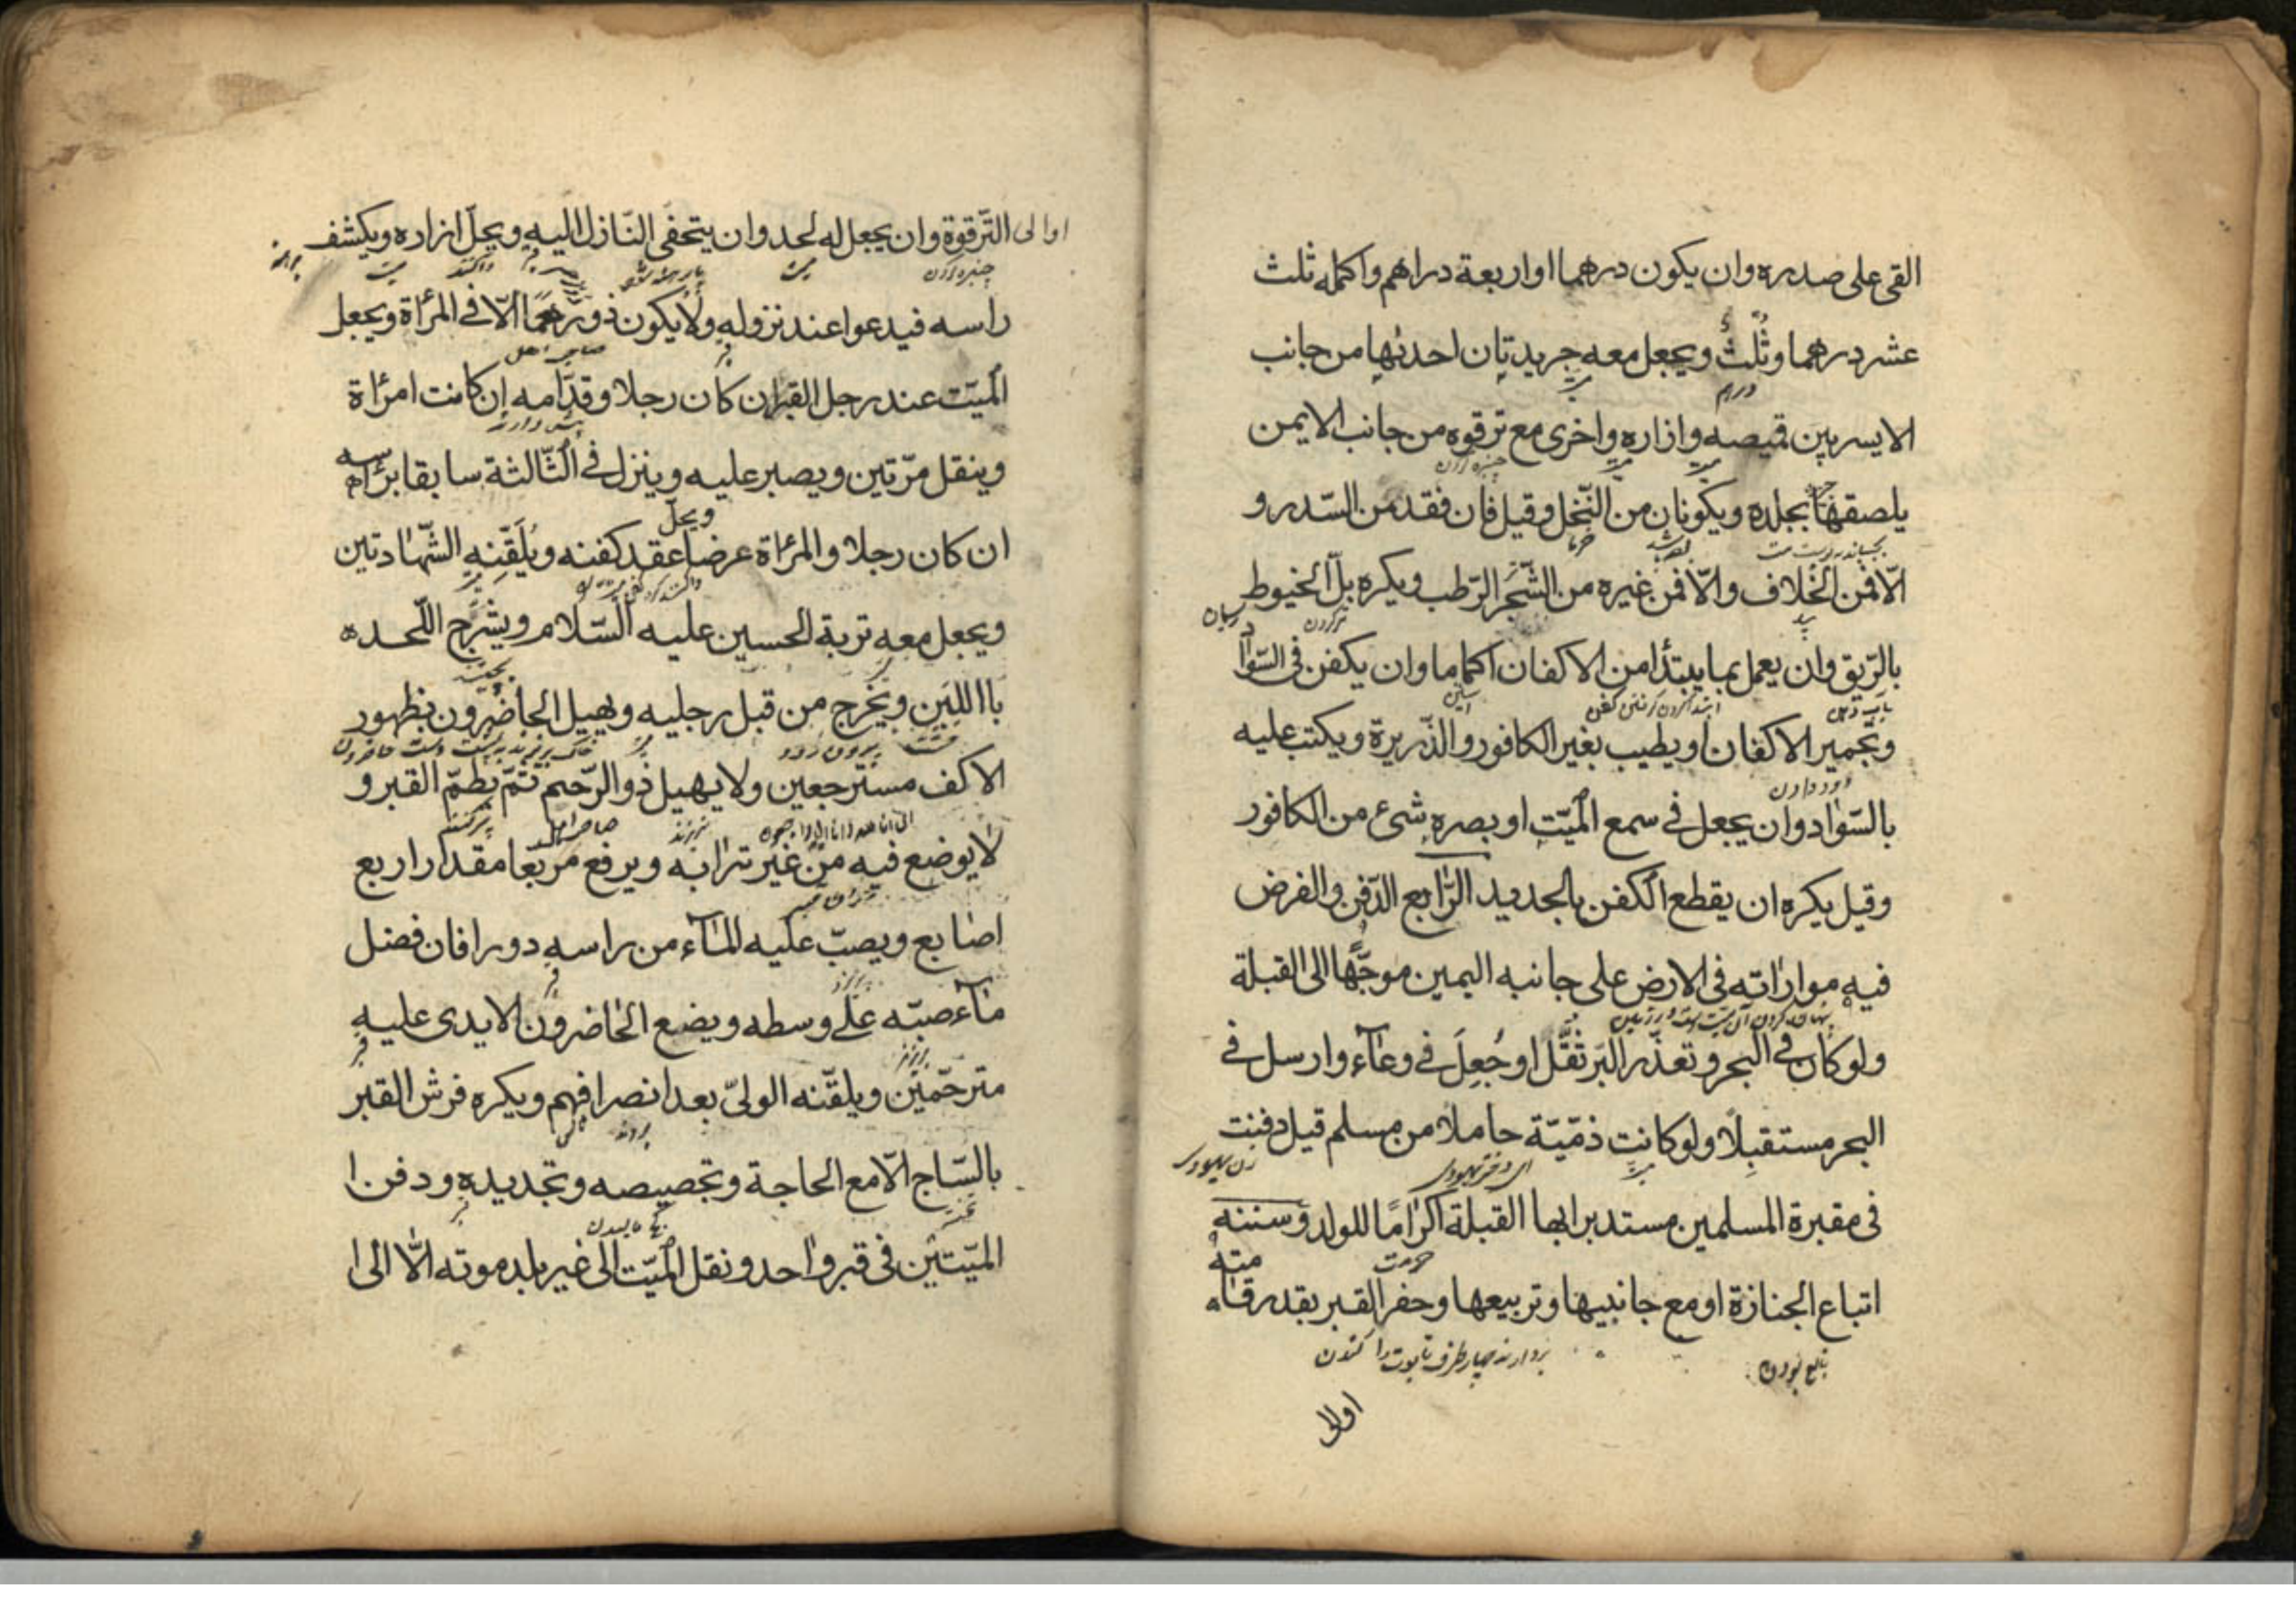 القى على صدره وان يكون درهما او اربعة دراهم واكمله ثلث
عشر درهما وثُلُثٌ ويجعل معه جريدتان احديٰها من جانب
درهم
الايسر بين قميصه وازاره واخرى مع ترقوه من جانب الايمن
چنبره گردن
يلصقها بجلده ويكونان من النّخل وقيل فان فقد من السّدر و
خرما
الّا فمن الخلاف والّا فمن غيره من الشّجر الرّطب ويكره بلّ الخيوط
بيد
تر كردن
ريسمان
بالرّيق وان يعمل بما يبتدأ من الاكفان اكماما وان يكفن فى السّواد
بآب دهن
آستين
وتجمير الاكفان او يطيب بغير الكافور والذّريرة ويكتب عليه
دود دادن
بالسّواد وان يجعل فى سمع الميّت او بصره شىء من الكافور
وقيل يكره ان يقطع الكفن بالحديد الرّابع الدّفن والفرض
فيه مواراته فى الارض على جانبه اليمين موجّهًا الى القبلة
ولو كان فى البحر وتعذّر البَر ثُقّل او جُعِلَ فى وعاء وارسل فى
البحر مستقبلًا ولو كانت ذمّيّة حاملا من مسلم قيل دفنت
زن يهودى
فى مقبرة المسلمين مستدبرا بها القبلة اكرامًا للولد وسننه
حرمت
اتباع الجنازة او مع جانبيها وتربيعها وحفر القبر بقدر قامته
تابع بودن
بردارند چهار طرف تابوت را
كندن
اوالى
اوالى التّرقوة وان يجعل له لحد وان يتحفى النّازل اليه ويحلّ ازاره ويكشف
چنبره گردن
ميت
راسه فيدعوا عند نزوله ولا يكون ذو رحمًا الّا فى المرأة ويجعل
صاحب اهل
الميّت عند رجل القبر ان كان رجلا وقدّامه ان كانت امرأة
وينقل مرّتين ويصبر عليه وينزل فى الثّالثة سابقا برأسه
ان كان رجلا والمرأة عرضا ويحلّ عقد كفنه ويُلَقِّنه الشّهادتين
ويجعل معه تربة الحسين عليه السّلام ويشرّج اللّحده
باللبِن ويخرج من قبل رجليه ويهيل الحاضرون بظهور
خشت
بيرون رود
الاكف مسترجعين ولا يهيل ذو الرّحم ثمّ يطمّ القبر و
انا لله وانا اليه راجعون
نريزند
صاحب اهل
پر كنند
لا يوضع فيه من غير ترابه ويرفع مربّعا مقدار اربع
اصابع ويصبّ عليه الماء من راسه دورا فان فضل
بريزند
ماء صبّه على وسطه ويضع الحاضرون الايدى عليه
مترحّمين ويلقّنه الولىّ بعد انصرافهم ويكره فرش القبر
بالسّاج الّا مع الحاجة وتجصيصه وتجديده ودفن ا
الميّتين فى قبر واحد ونقل الميّت الى غير بلد موته الّا الى ا